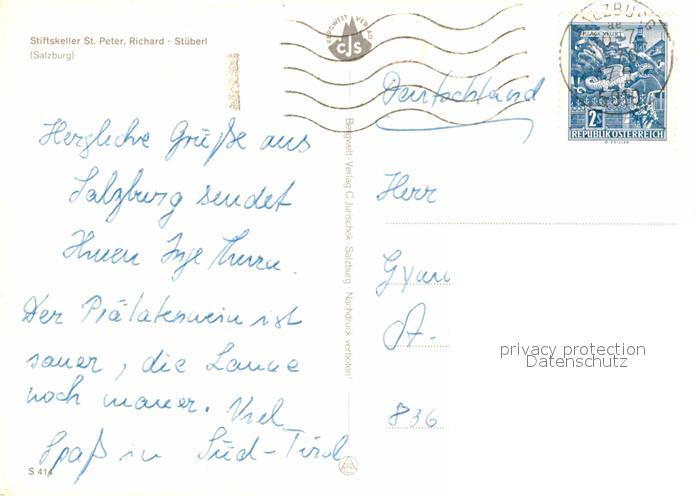 Stiftskeller St. Peter, Richard - Stüberl
(Salzburg)
Herzliche Grüße aus
Salzburg sendet
Ihnen Inge
Der Prälatenwein ist
sauer, die Laune
noch mauer. Viel
Spaß in Süd-Tirol
S 414
BERGWELT VERLAG
CJS
Bergwelt-Verlag C. Jurischek, Salzburg - Nachdruck verboten!
SALZBURG
KLAGENFURT
2S
REPUBLIK ÖSTERREICH
Deutschland
Herr
A.
836
privacy protection
Datenschutz